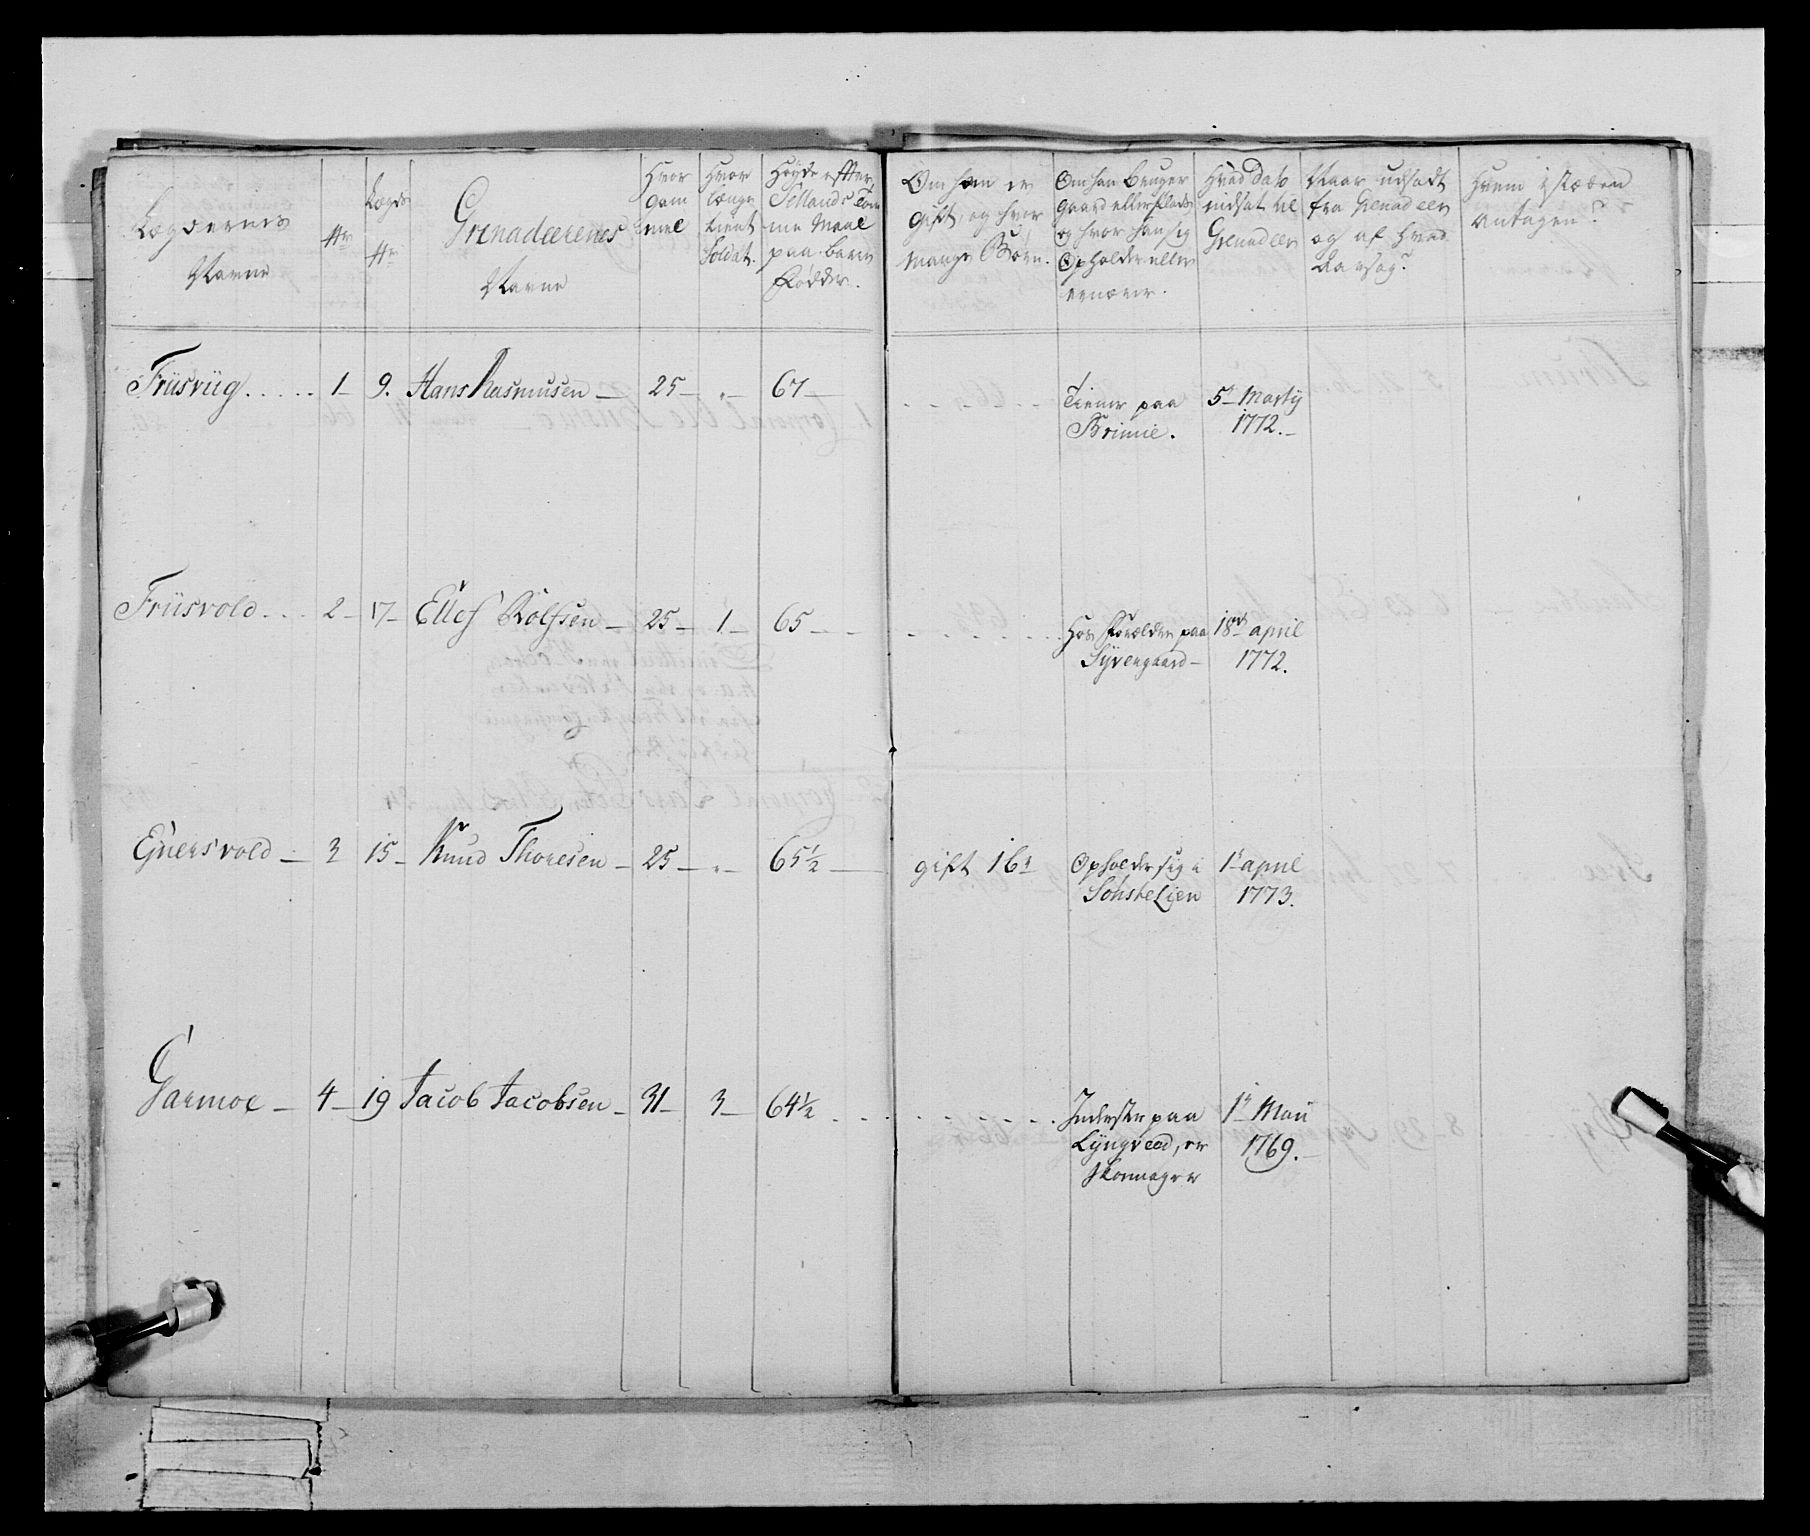 Lægdernes
Navne
No
Lægds
No
Grenadeerenes
Navne
Hvor
gam
mel
Hvor
længe
tient
Soldat.
Høyde efter
Sellands Tom
me Maal
paa bare
Fødder.
Om han er
gift, og hvor
mange Børn.
Om han bruger
gaard eller plads
og hvor han sig
Opholder eller
ernærer.
Hvad dato
indsat til
Grenadeer
Naar udsadt
fra Grenadeer
og af hvad
Aarsag?
Hvem i stæden
antagen?
Friisviig . . . . . 1 - 9. Hans Rasmusen - 25 - „ - 67 -
Tiener paa 5te Marty
Brimie. 1772. -
Friisvold . . . 2 - 17 - Ellef Rolfsen - 25 - 1 - 65 - -
Hos Forældre paa 18de april
Syvengaard - 1772.
Ejnersvold - 3 15 - Knud Thoresen - 25 - „ - 65½ - gift 1 b: Opholder sig i 1te april
Sønste Lien 1773.
Garmoe - 4 - 19 Jacob Jacobsen - 31 - 3 - 64½ . .
Inderste paa 1te Maii
Lyngved, er 1769. -
Skomager